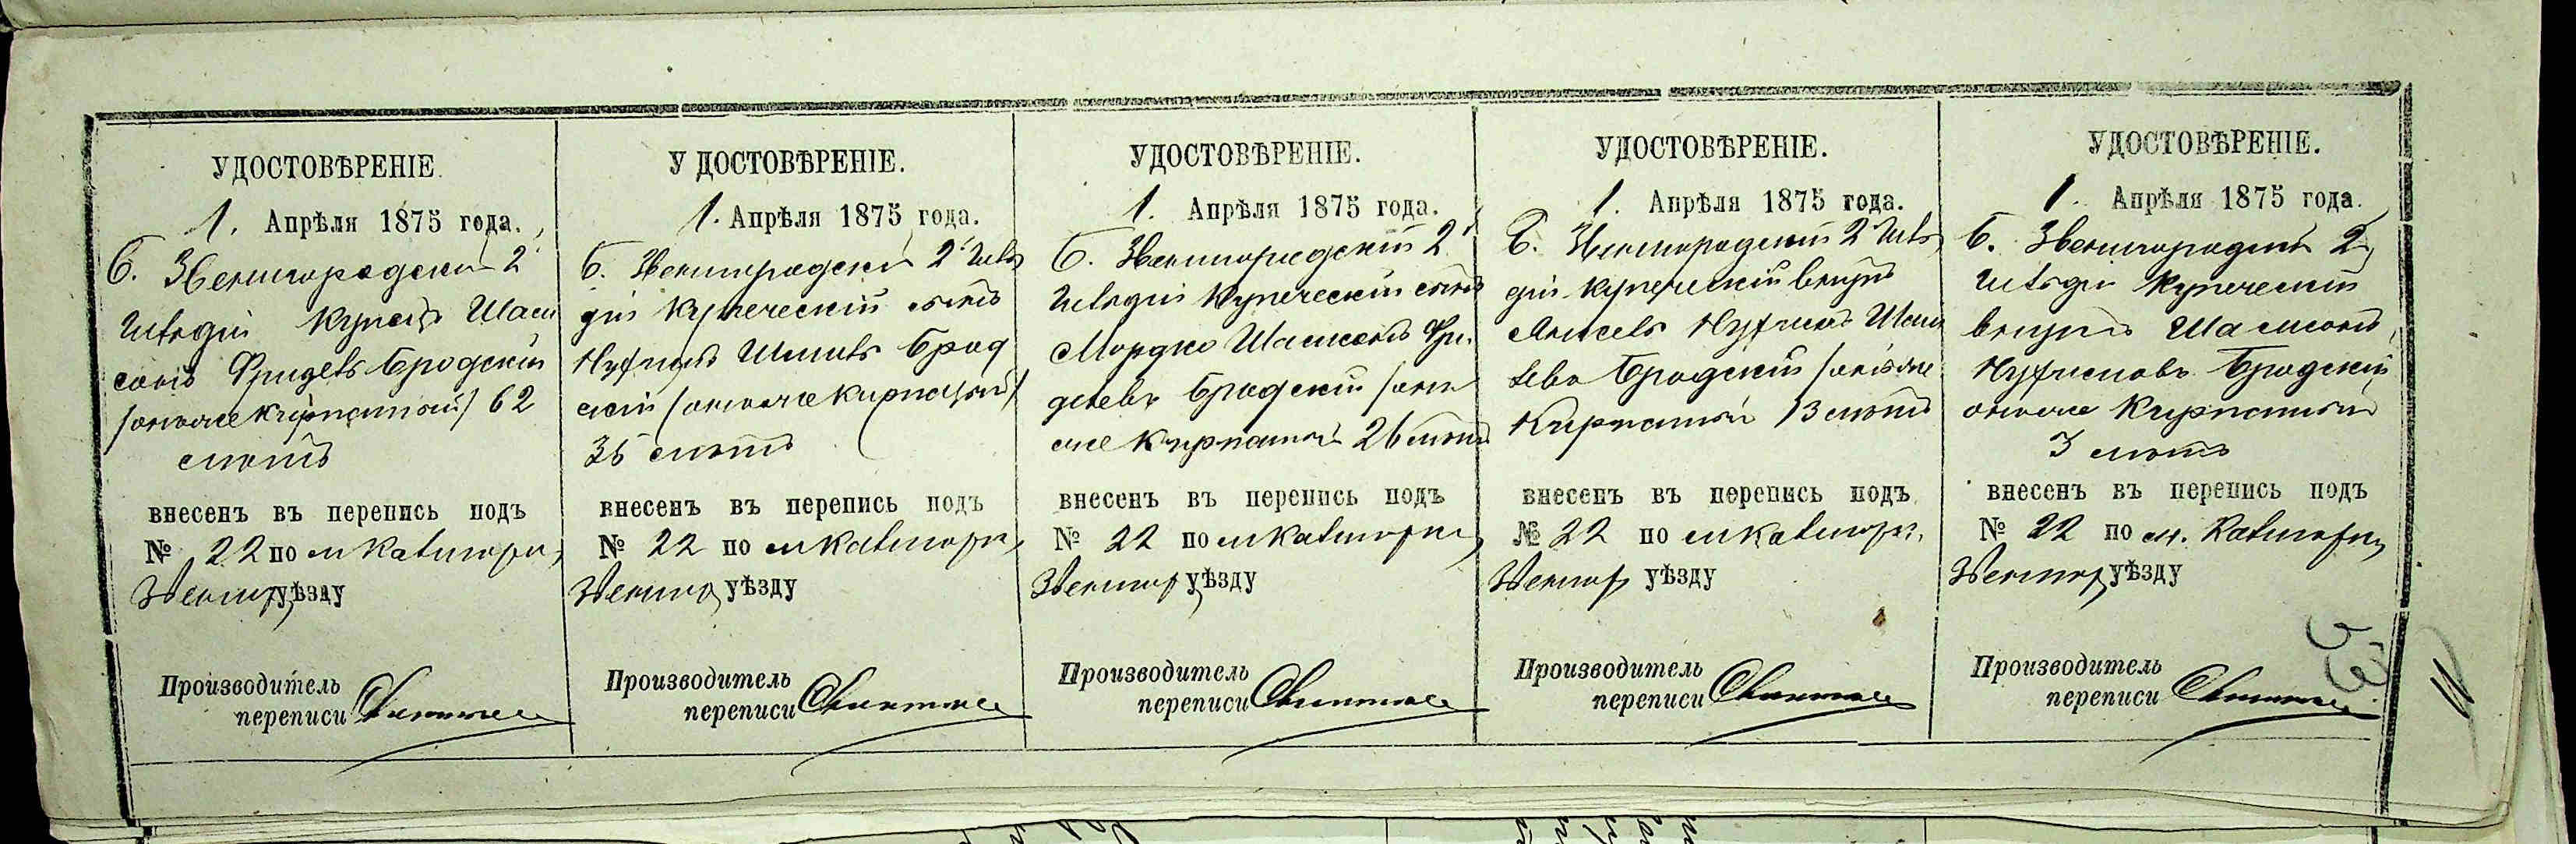 УДОСТОВѢРЕНІЕ.
1. Апрѣля 1875 года.
б. Звенигородскій 2
гильдіи купецъ Шам
сонъ Фридевъ Бродскій
(онъ же Кирпатый) 62
лѣтъ
внесенъ въ перепись подъ
№ 22 по м Катиогри,
Звениг, уѣзду
Производитель
переписи
УДОСТОВѢРЕНІЕ.
1. Апрѣля 1875 года.
б. Звенигородскій 2 гиль
діи купеческій сынъ
Нухимъ Брод
скій (онъ же Кирпатый)
35 лѣтъ
внесенъ въ перепись подъ
№ 22 по м Катиогри,
Звениг, уѣзду
Производитель
переписи
УДОСТОВѢРЕНІЕ.
1. Апрѣля 1875 года.
б. Звенигородскій 2
гильдіи купеческій сынъ
Мордко Шамсонъ Фри
девъ Бродскій (онъ
же Кирпатый 26 лѣтъ
внесенъ въ перепись подъ
№ 22 по м Катиогри,
Звениг, уѣзду
Производитель
переписи
УДОСТОВѢРЕНІЕ.
1. Апрѣля 1875 года.
б. Звенигородскій 2 гиль
діи купеческій внукъ
Нухимъ
Бродскій (онъ же
Кирпатый 13 лѣтъ
внесенъ въ перепись подъ
№ 22 по м Катиогри,
Звениг уѣзду
Производитель
переписи
УДОСТОВѢРЕНІЕ.
1. Апрѣля 1875 года.
б. Звенигородскій 2
гильдіи купеческій
внукъ Шамсонъ
Нухимовъ Бродскій
онъ же Кирпатый
3 лѣтъ
внесенъ въ перепись подъ
№ 22 по м. Катиогри,
Звениг, уѣзду
Производитель
переписи